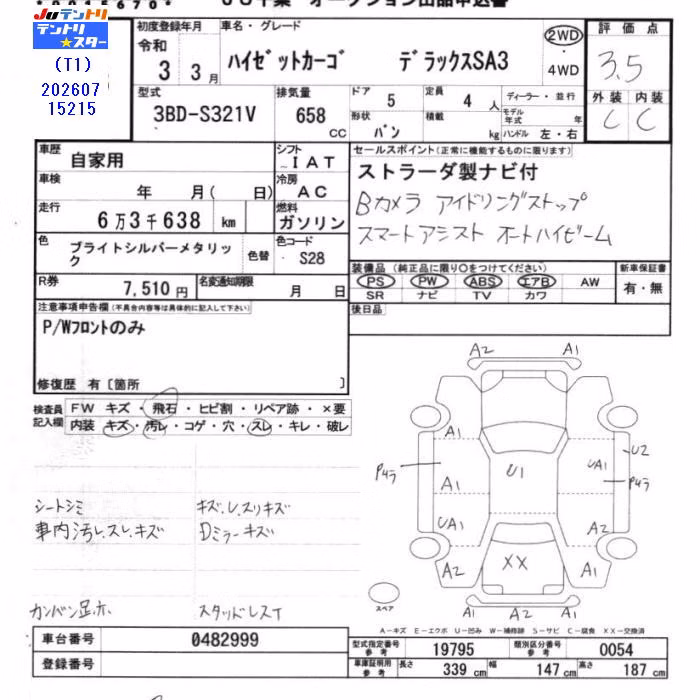 JUテントリ
テントリ★スター
(T1)
202607
15215
初度登録年月
令和
3 3月
車名・グレード
ハイゼットカーゴ デラックスSA3
2WD
・
4WD
評価点
3.5
外装 内装
C C
型式
3BD-S321V
排気量
658
CC
ドア
5
定員
4 人
形状
バン
積載
kg
ディーラー・並行
モデル年式 年
ハンドル 左・右
車歴
自家用
シフト
IAT
セールスポイント(正常に機能するものに限ります)
ストラーダ製ナビ付
Bカメラ アイドリングストップ
スマートアシスト オートハイビーム
車検
年 月( 日)
冷房
AC
走行
6万3千638 km
燃料
ガソリン
色
ブライトシルバーメタリック
色替
色コード
S28
装備品(純正品に限り○をつけてください)
PS PW ABS エアB AW
SR ナビ TV カワ
新車保証書
有・無
R券
7,510円
名変通知期限
月 日
後日品
注意事項申告欄(不具合内容等は具体的に記入して下さい)
P/Wフロントのみ
修復歴 有〔箇所 〕
検査員記入欄
FW キズ・飛石・ヒビ割・リペア跡・×要
内装 キズ・汚レ・コゲ・穴・スレ・キレ・破レ
A2 A1
A1
U2
P4ラ U1 UA1 P4ラ
A1
UA1 A2
XX
A2 A1
A1 A2 A1
スペア
シートシミ キズ、レスリキズ
車内汚レ、スレ、キズ Dミラーキズ
カンバン足赤 スタッドレスT
A-キズ E-エクボ U-凹み W-補修跡 S-サビ C-腐食 XX-交換済
車台番号
0482999
登録番号
型式指定番号
参考
19795
類別区分番号
参考
0054
車庫証明用
参考
長さ 339 cm 幅 147 cm 高さ 187 cm